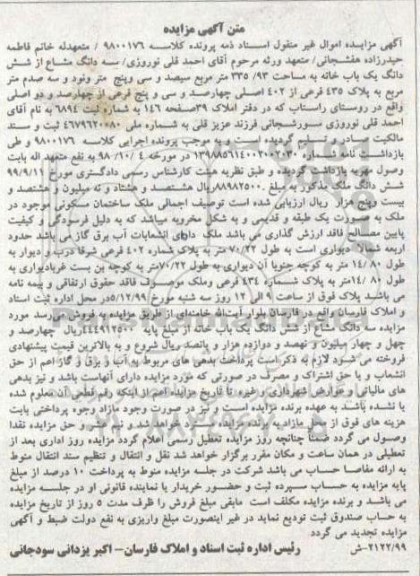 متن آگهی مزایده
آگهی مزایده اموال غیر منقول اسناد ذمه پرونده کلاسه ۹۸۰۰۱۷۶ / متعهدله خانم فاطمه
حیدرزاده هفشجانی/ متعهد ورثه مرحوم آقای احمد قلی نوروزی/ سه دانگ مشاع از شش
دانگ یک باب خانه به مساحت ۳۳۵/۹۳ متر مربع سیصد و سی وپنج متر ونود و سه صدم متر
مربع به پلاک ۴۳۵ فرعی از ۴۰۲ اصلی چهارصد و سی و پنج فرعی از چهارصد و دو اصلی
واقع در روستای راستاب که در دفتر املاک ۳۹صفحه ۱۴۶ به شماره ثبت ۶۸۹۴ به نام آقای
احمد قلی نوروزی سورشجانی فرزند عزیز قلی به شماره ملی ۴۶۷۹۶۲۰۰۸۰ ثبت و سند
مالکیت صادر و تسلیم گردیده است. به موجب پرونده اجرایی کلاسه ۹۸۰۰۱۷۶ و طی
بازداشت نامه شماره ۱۳۹۸۸۵۶۱۴۰۰۲۰۰۲۰۳۰ در مورخه ۹۸/۱۰/۰۴ به نفع متعهد اله بابت
وصول مهریه بازداشت گردیده و طبق نظریه هیئت کارشناس رسمی دادگستری مورخ ۹۹/۹/۱۱
شش دانگ ملک مذکور به مبلغ ۸۸۹۸۲۵۰۰۰ریال هشتصد و هشتاد و نه میلیون و هشتصد و
بیست وپنج هزار ریال ارزیابی شده است توصیف اجمالی ملک ساختمان مسکونی موجود در
ملک به صورت یک طبقه و قدیمی و به شکل مخروبه میباشد که به دلیل فرسودگی و کیفیت
پایین مصالح فاقد ارزش گذاری می باشد ملک دارای انشعابات آب برق گاز می باشد حدود
اربعه شمالاً دیواری است به طول ۷۰/۲۲ متر به پلاک شماره ۴۰۲ فرعی شرقا درب و دیوار به
طول ۱۴/۸۰ متر به کوچه جنوبا آن دیواری به طول ۷۰/۲۲متر به کوچه بن بست غربادیواریه به
طول ۱۴/۸۰متر به پلاک شماره ۴۳۴ فرعی وملک موصوف فاقد حقوق ارتفاقی و بیمه نامه
می باشد پلاک فوق از ساعت ۹ الی ۱۲ روز سه شنبه مورخ ۵/۱۲/۹۹در محل اداره ثبت اسناد
و املاک فارسان واقع در فارسان بلوار آیت‌اله خامنه‌ای از طریق مزایده به فروش می‌رسد مورد
مزایده سه دانگ مشاع از شش دانگ یک باب خانه از مبلغ پایه ۴۴۴۹۱۲۵۰۰ریال چهارصد و
چهل و چهار میلیون و نهصد و دوازده هزار و پانصد ریال شروع و به بالاترین قیمت پیشنهادی
فروخته می شود لازم به ذکر است پرداخت بدهی های مربوط به آب و برق و گاز اعم از حق
انشعاب و یا حق اشتراک و مصرف در صورتی که مورد مزایده دارای آنهاست باشد و نیز بدهی
های مالیاتی و عوارض شهرداری و غیره تا تاریخ مزایده اعم از اینکه رقم قطعی آن معلوم شده
یا نشده باشد به عهده برنده مزایده است و نیز در صورت وجود مازاد وجوه پرداختی بابت
هزینه های فوق از محل مازاد به برنده مزایده مسترد خواهد شد و نیم عشر و حق مزایده نقدا
وصول می گردد ضمناً چنانچه روز مزایده تعطیل رسمی اعلام گردد مزایده روز اداری بعد از
تعطیلی در همان ساعت و مکان مقرر برگزار خواهد شد نقل و انتقال و تنظیم سند انتقال منوط
به ارائه مفاصا حساب می باشد شرکت در جلسه مزایده منوط به پرداخت ۱۰ درصد از مبلغ
پایه مزایده به حساب سپرده ثبت و حضور خریدار یا نماینده قانونی او در جلسه مزایده
می باشد و برنده مزایده مکلف است مابقی مبلغ فروش را ظرف مدت ۵ روز از تاریخ مزایده
به حساب صندوق ثبت تودیع نماید در غیر اینصورت مبلغ واریزی به نفع دولت ضبط و آگهی
مزایده تجدید می گردد
۲۱۲۲/۹۹-ش رئیس اداره ثبت اسناد و املاک فارسان– اکبر یزدانی سودجانی